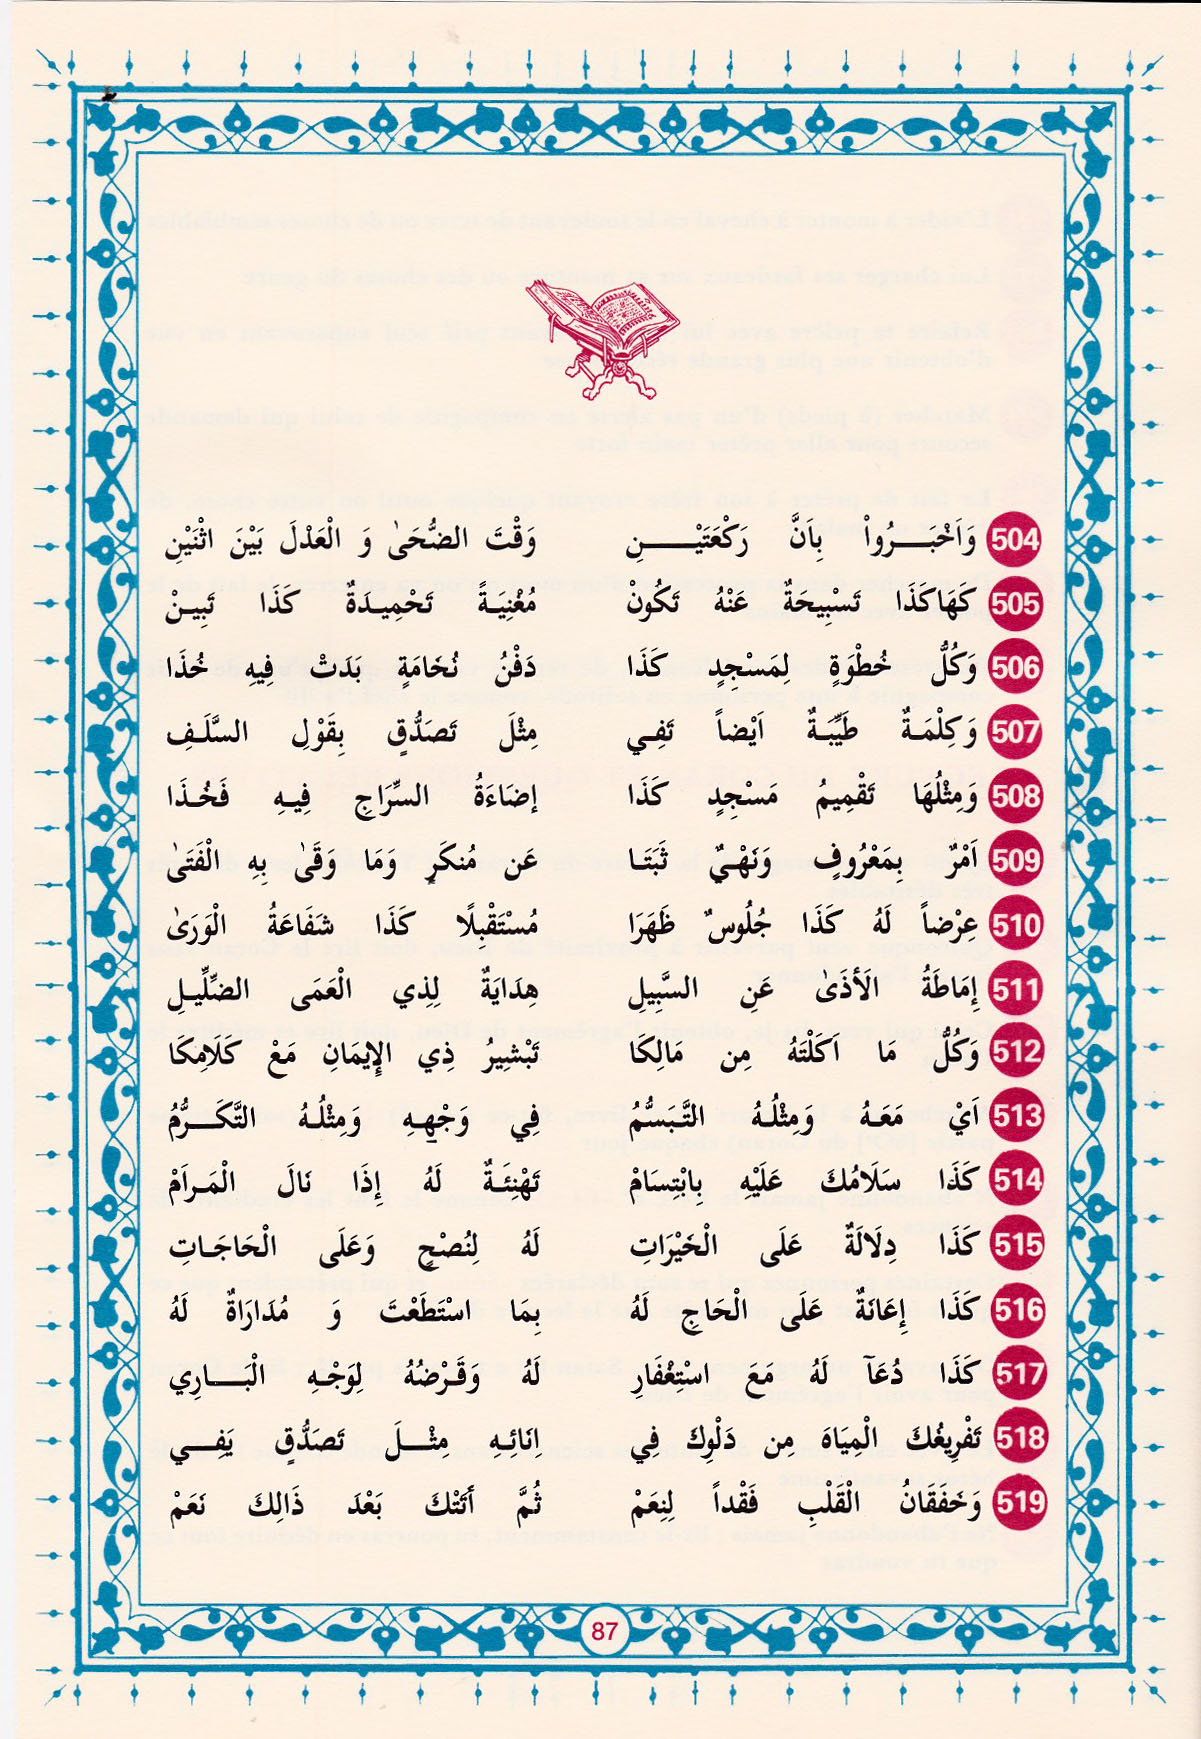 504 وَاَخْبَرُواْ بِاَنَّ رَكْعَتَيْنِ وَقْتَ الضُّحَىٰ وَ الْعَدْلَ بَيْنَ اثْنَيْنِ
505 كَهَاكَذَا تَسْبِيحَةٌ عَنْهُ تَكُونْ مُغْنِيَةً تَحْمِيدَةٌ كَذَا تَبِينْ
506 وَكُلُّ خُطْوَةٍ لِمَسْجِدٍ كَذَا دَفْنُ نُخَامَةٍ بَدَتْ فِيهِ خُذَا
507 وَكِلْمَةٌ طَيِّبَةٌ اَيْضاً تَفِي مِثْلَ تَصَدُّقٍ بِقَوْلِ السَّلَفِ
508 وَمِثْلُهَا تَقْمِيمُ مَسْجِدٍ كَذَا إضَاءَةُ السِّرَاجِ فِيهِ فَخُذَا
509 اَمْرٌ بِمَعْرُوفٍ وَنَهْيٌ ثَبَتَا عَن مُنكَرٍ وَمَا وَقَىٰ بِهِ الْفَتَىٰ
510 عِرْضاً لَهُ كَذَا جُلُوسٌ ظَهَرَا مُسْتَقْبِلًا كَذَا شَفَاعَةُ الْوَرَىٰ
511 إمَاطَةُ الَأذَىٰ عَنِ السَّبِيلِ هِدَايَةٌ لِذِي الْعَمَى الضِّلِّيلِ
512 وَكُلُّ مَا اَكَلْتَهُ مِن مَالِكَا تَبْشِيرُ ذِي الإِيمَانِ مَعْ كَلَامِكَا
513 اَيْ مَعَهُ وَمِثْلُهُ التَّبَسُّمُ فِي وَجْهِهِ وَمِثْلُهُ التَّكَرُّمُ
514 كَذَا سَلَامُكَ عَلَيْهِ بِابْتِسَامْ تَهْنِئَةٌ لَهُ إِذَا نَالَ الْمَرَامْ
515 كَذَا دِلَالَةٌ عَلَى الْخَيْرَاتِ لَهُ لِنُصْحٍ وَعَلَى الْحَاجَاتِ
516 كَذَا إِعَانَةٌ عَلَى الْحَاجِ لَهُ بِمَا اسْتَطَعْتَ وَ مُدَارَاةٌ لَهُ
517 كَذَا دُعَآ لَهُ مَعَ اسْتِغْفَارِ لَهُ وَقَرْضُهُ لِوَجْهِ الْبَارِي
518 تَفْرِيغُكَ الْمِيَاهَ مِن دَلْوِكَ فِي اِنَائِهِ مِثْلَ تَصَدُّقٍ يَفِي
519 وَخَفَقَانُ الْقَلْبِ فَقْداً لِنِعَمْ ثُمَّ أَتَتْكَ بَعْدَ ذَالِكَ نَعَمْ
87